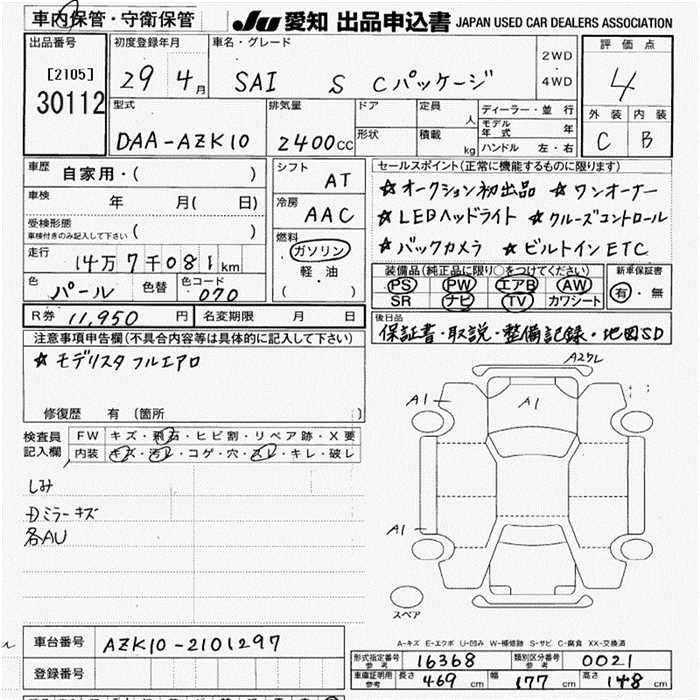 車内保管・守衛保管
JU 愛知 出品申込書 JAPAN USED CAR DEALERS ASSOCIATION
出品番号
[2105]
30112
初度登録年月
29 4月
車名・グレード
SAI S Cパッケージ
2WD
・
4WD
評価点
4
外装 内装
C B
型式
DAA-AZK10
排気量
2400cc
ドア
形状
定員
人
積載
kg
ディーラー・並行
モデル年式 年
ハンドル 左・右
車歴
自家用・( )
車検 年 月( 日)
受検形態
車検付きのみ記入して下さい ( )
走行
14万7千081km
色
パール
色替
色コード
070
シフト
AT
冷房
AAC
燃料
ガソリン
軽・油
( )
セールスポイント(正常に機能するものに限ります)
☆オークション初出品 ☆ワンオーナー
☆LEDヘッドライト ☆クルーズコントロール
☆バックカメラ ☆ビルトインETC
装備品(純正品に限り○をつけてください)
PS PW エアB AW
SR ナビ TV カワシート
新車保証書
有・無
R券 11,950円 名変期限 月 日
後日品
保証書・取説・整備記録・地図SD
注意事項申告欄(不具合内容等は具体的に記入して下さい)
☆モデリスタフルエアロ
修復歴 有 (箇所 )
検査員
記入欄
FW キズ・飛石・ヒビ割・リペア跡・X要
内装 キズ・汚レ・コゲ・穴・スレ・キレ・破レ
しみ
Dミラーキズ
各AU
A2クレ
A1
A1
A1
スペア
A-キズ E-エクボ U-凹み W-補修跡 S-サビ C-腐食 XX-交換済
車台番号 AZK10-2101297
登録番号
形式指定番号
参考 16368
類別区分番号
参考 0021
車庫証明用
参考 長さ 469cm 幅 177cm 高さ 148cm